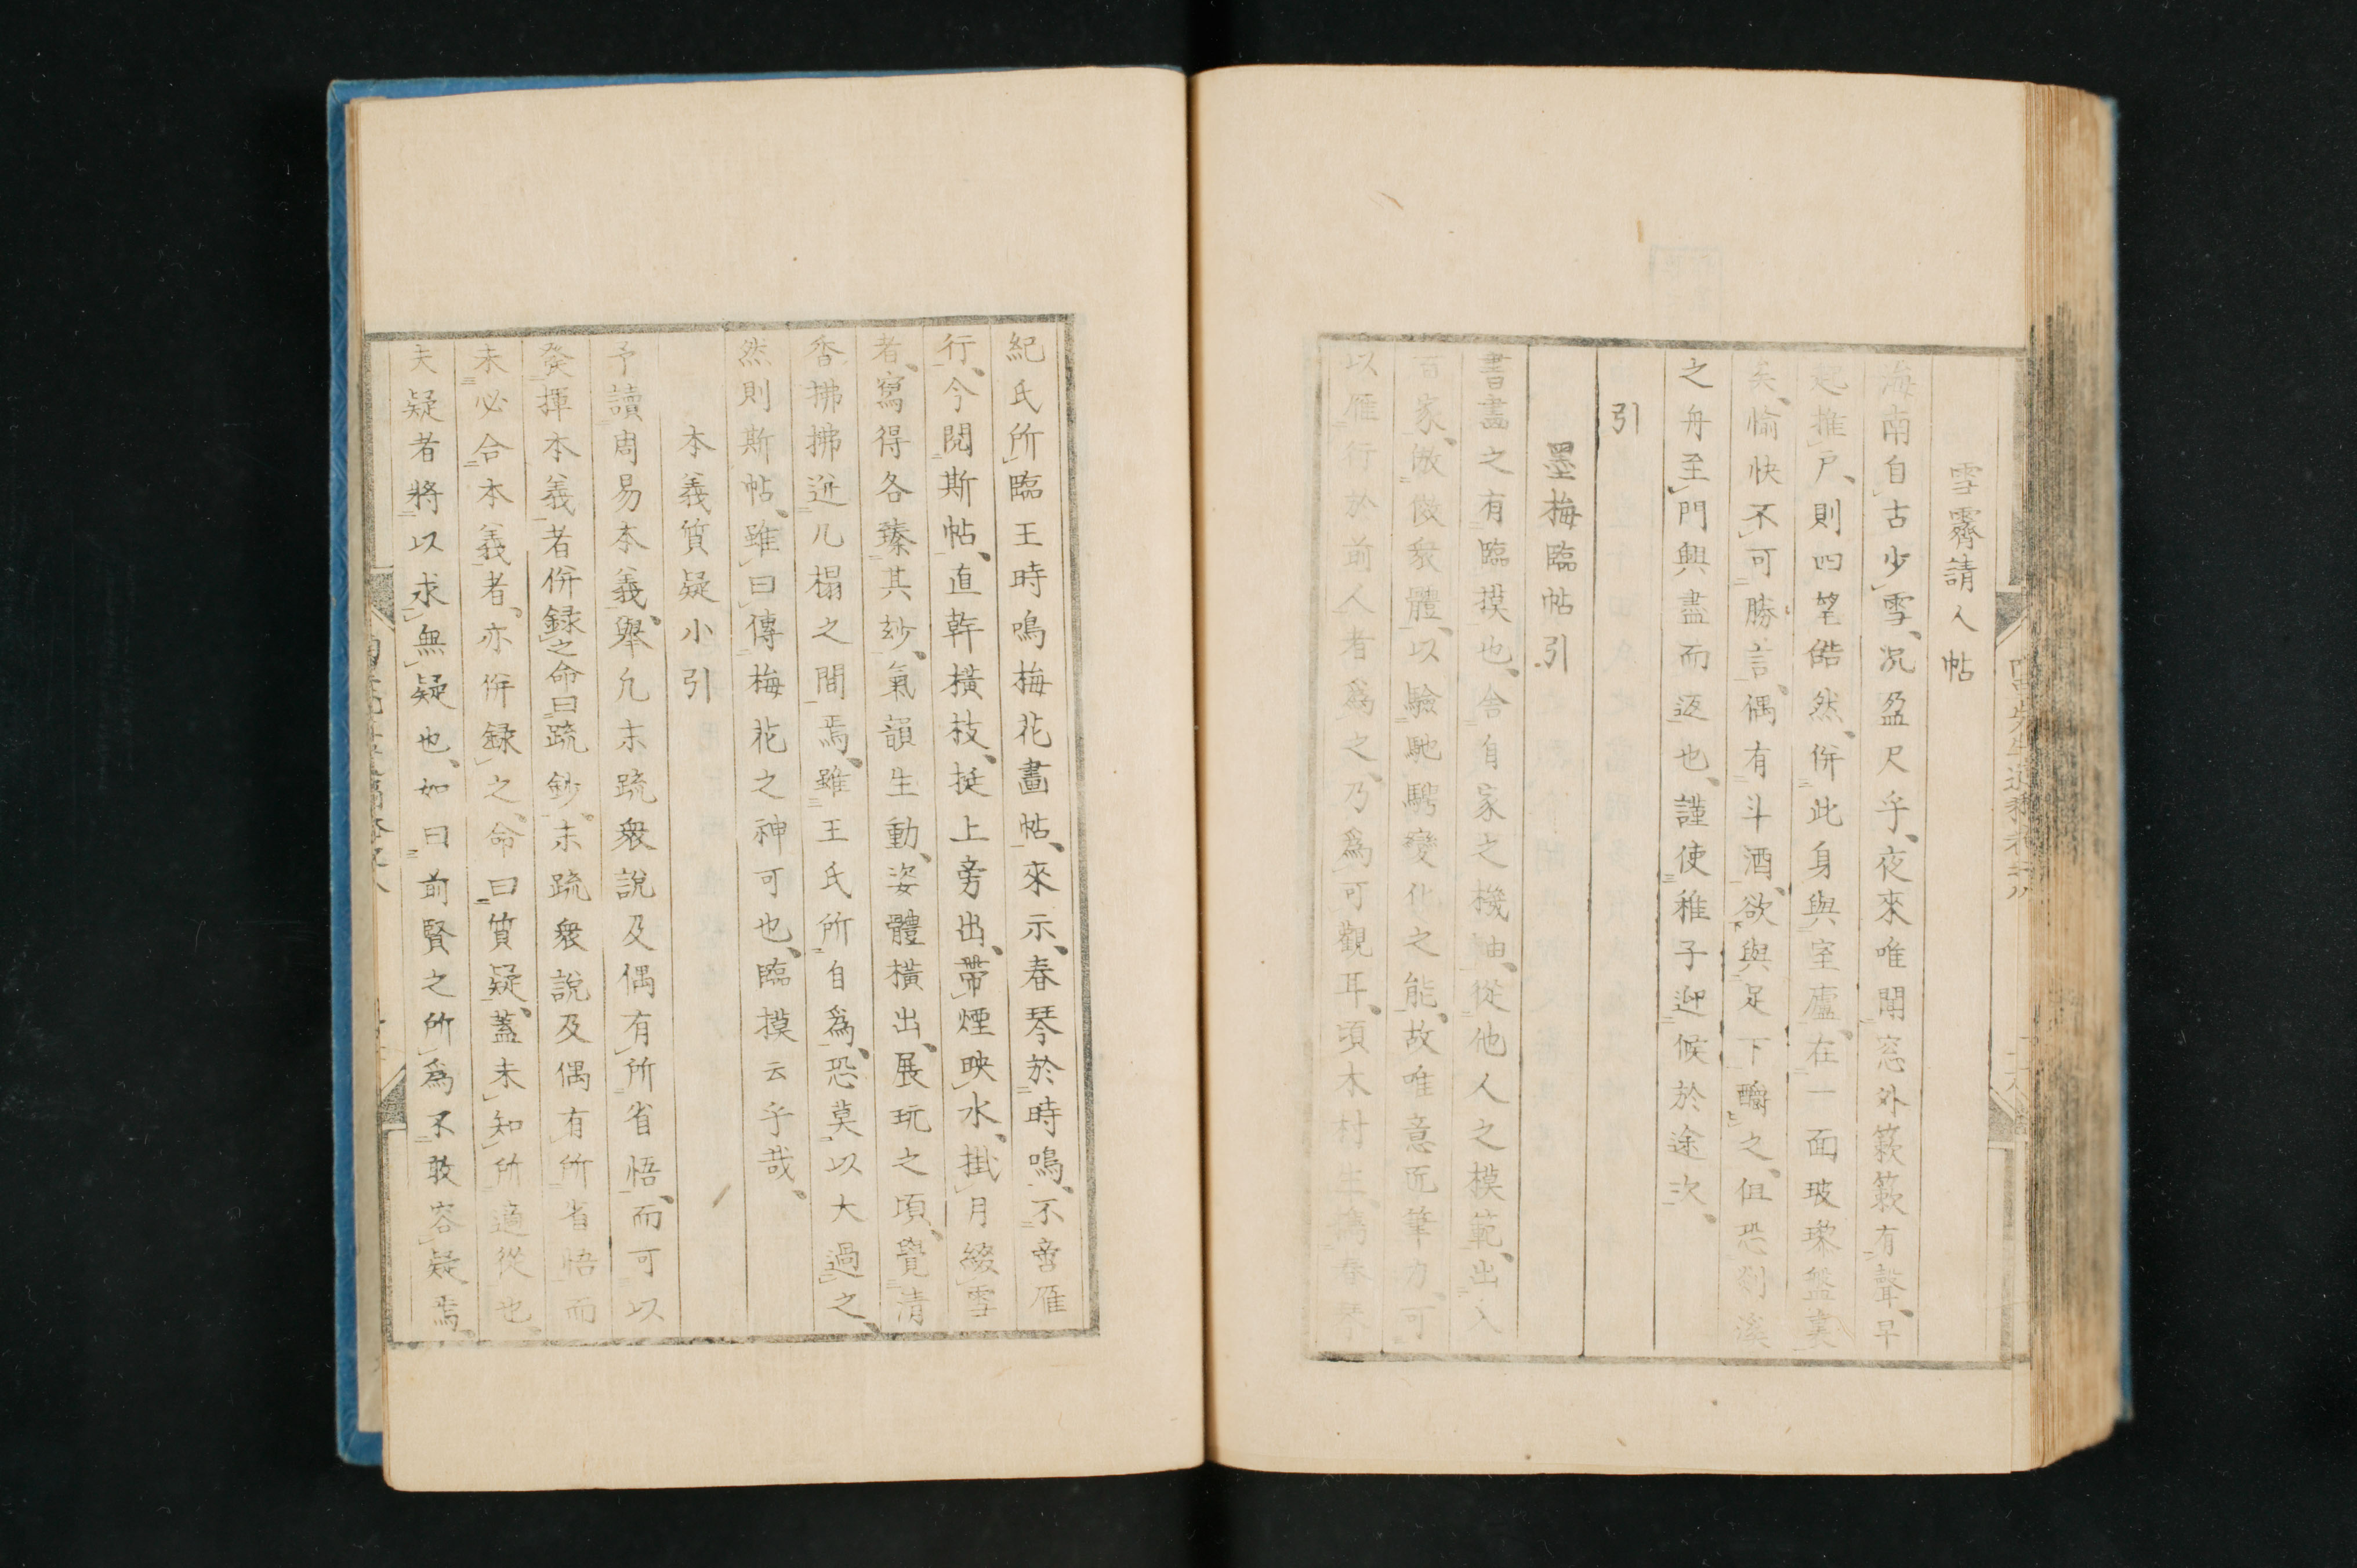 雪霽請人帖
海南自古少雪、况盈尺乎、夜來唯聞窓外簌簌有聲、早
起推戶、則四望皓然、併此身與室廬、在一面玻瓈盆裏
矣、愉快不可勝言、偶有斗酒、欲與足下酹之、但恐剡溪
之舟至門興盡而返也、謹使稚子迎候於途次、
引
墨梅臨帖引
書畫之有臨摸也、舍自家之機軸、從他人之模範、出入
百家、倣傚衆體、以驗馳騁變化之能、故唯意匠筆力、可
以雁行於前人者爲之、乃爲可觀耳、頃木村生、携春琴
紀氏所臨王時鳴梅花畫帖、來示、春琴於時鳴、不啻雁
行、今閱斯帖、直幹橫枝、挺上旁出、帶煙映水、掛月綴雪
者、寫得各臻其玅、氣韻生動、姿體橫出、展玩之頃、覺清
香拂拂逬几榻之間焉、雖王氏所自爲、恐莫以大過之、
然則斯帖、雖曰傳梅花之神可也、臨摸云乎哉、
本義質疑小引
予讀周易本義、舉凡末疏衆說及偶有所省悟、而可以
發揮本義者併錄之命曰疏鈔。末疏衆說及偶有所省悟而
未必合本義者、亦併錄之、命曰質疑、蓋未知所適從也、
夫疑者將以求無疑也、如曰前賢之所爲不敢容疑焉、